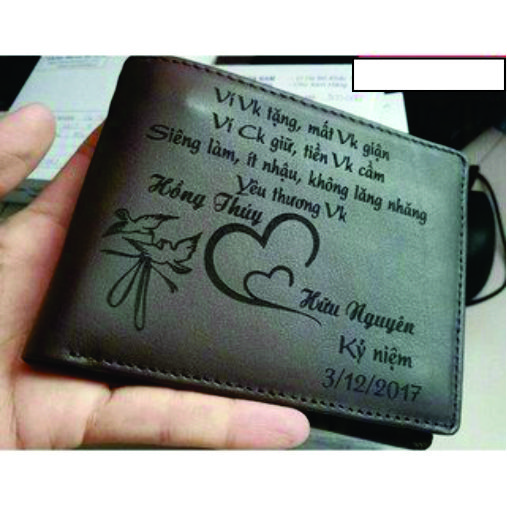 Ví Vk tặng, mất Vk giận
Ví Ck giữ, tiền Vk cầm
Siêng làm, ít nhậu, không lăng nhăng
Yêu thương Vk
Hồng Thúy
Hữu Nguyên
Kỷ niệm
3/12/2017